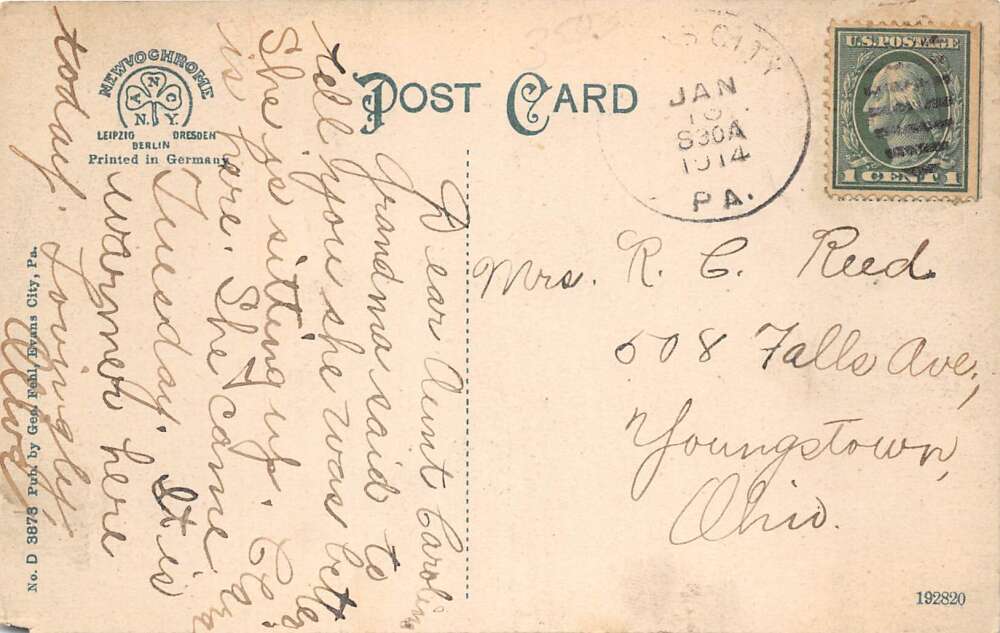 NEWVOCHROME
A N C
N. Y.
LEIPZIG DRESDEN
BERLIN
Printed in Germany
POST CARD
S CITY
JAN
13
830A
1914
PA.
U.S. POSTAGE
1 CENT 1
Mrs. R. C. Reed
508 Falls Ave,
Youngstown,
Ohio.
Dear Aunt Caroline
Grandma said to
tell you she was bett
She is sitting up. Cly
is here. She came
Tuesday. It is
warmer here
today. Lovingly,
No. D 3878 Pub. by Geo. Fehl, Evans City, Pa.
192820